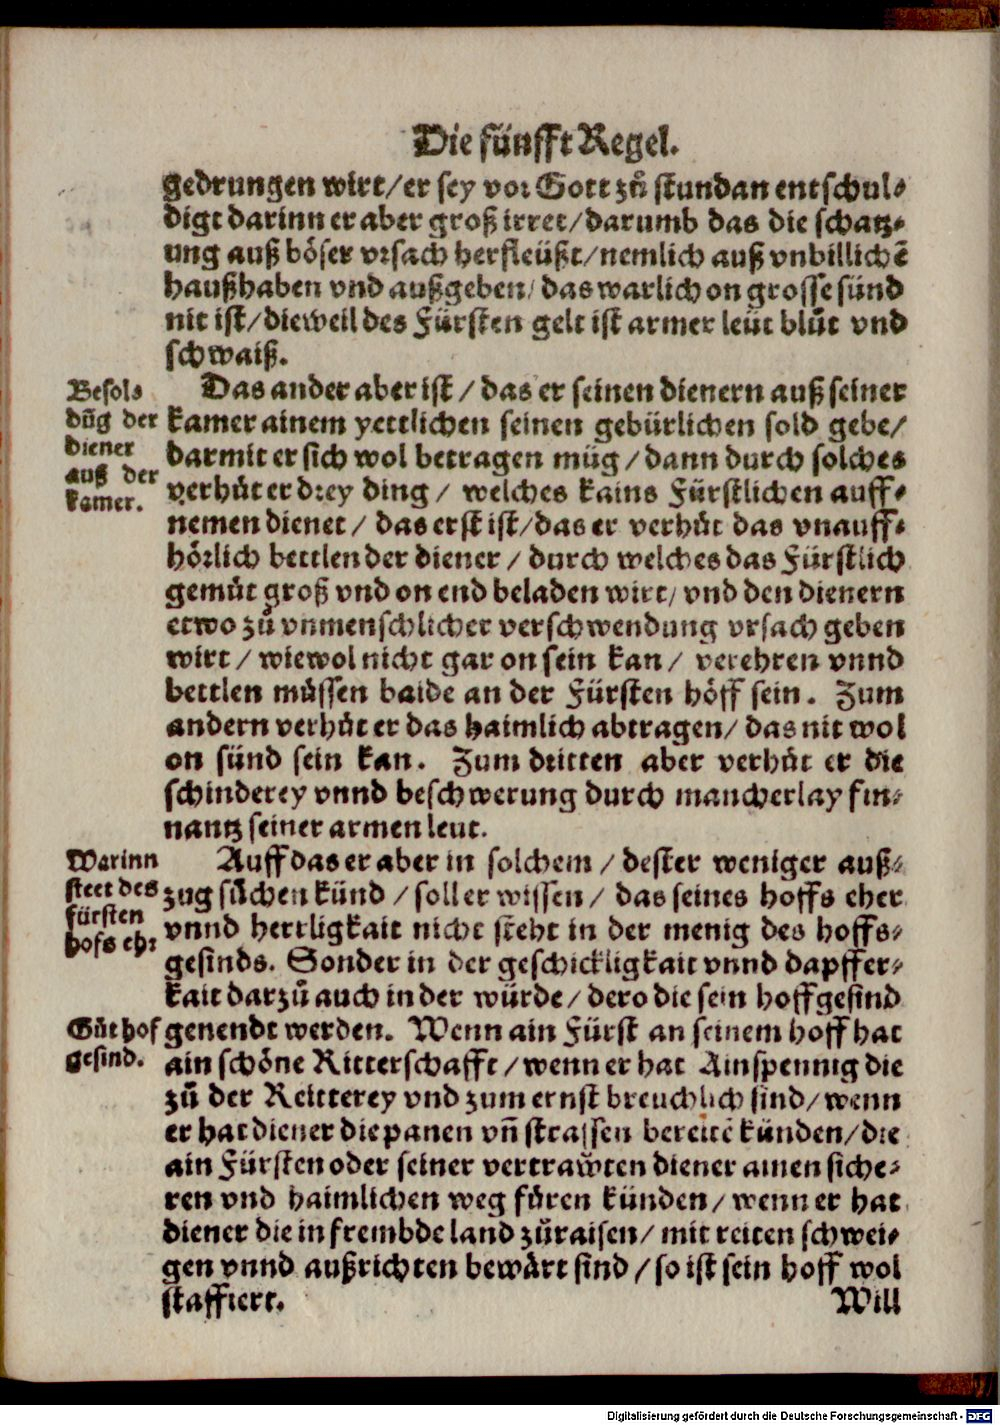 Die fünfft Regel.
gedrungen wirt/er sey vor Gott zů stundan entschul-
digt darinn er aber groß irret/darumb das die schatz-
ung auß böser vrsach herfleüßt/nemlich auß vnbillichē
haußhaben vnd außgeben/das warlich on grosse sünd
nit ist/dieweil des Fürsten gelt ist armer leüt blůt vnd
schwaiß.
Besol-
dūg der
diener
auß der
kamer.
Das ander aber ist/das er seinen dienern auß seiner
kamer ainem yettlichen seinen gebürlichen sold gebe/
darmit er sich wol betragen müg/dann durch solches
verhüt er drey ding/ welches kains Fürstlichen auff-
nemen dienet/ das erst ist/das er verhüt das vnauff-
hörlich bettlen der diener/durch welches das Fürstlich
gemüt groß vnd on end beladen wirt/vnd den dienern
etwo zů vnmenschlicher verschwendung vrsach geben
wirt/ wiewol nicht gar on sein kan/ verehren vnnd
bettlen müssen baide an der Fürsten höff sein. Zum
andern verhüt er das haimlich abtragen/das nit wol
on sünd sein kan. Zum dritten aber verhüt er die
schinderey vnnd beschwerung durch mancherlay fin-
nantz seiner armen leut.
Warinn
steet des
fürsten
hofs ehr
Auff das er aber in solchem/dester weniger auß-
zug süchen künd/soll er wissen/das seines hoffs eher
vnnd herrligkait nicht steht in der menig des hoffs-
gesinds. Sonder in der geschickligkait vnnd dapffer-
kait darzů auch in der würde/dero die sein hoffgesind
Gůt hof
gesind.
genendt werden. Wenn ain Fürst an seinem hoff hat
ain schöne Ritterschafft/wenn er hat Ainspennig die
zů der Reitterey vnd zum ernst breuchlich sind/wenn
er hat diener die panen vñ strassen bereitē künden/die
ain Fürsten oder seiner vertrawten diener ainen siche-
ren vnd haimlichen weg füren künden/wenn er hat
diener die in frembde land zůraisen/mit reiten schwei-
gen vnnd außrichten bewärt sind/so ist sein hoff wol
staffiert.
Will
Digitalisierung gefördert durch die Deutsche Forschungsgemeinschaft - DFG